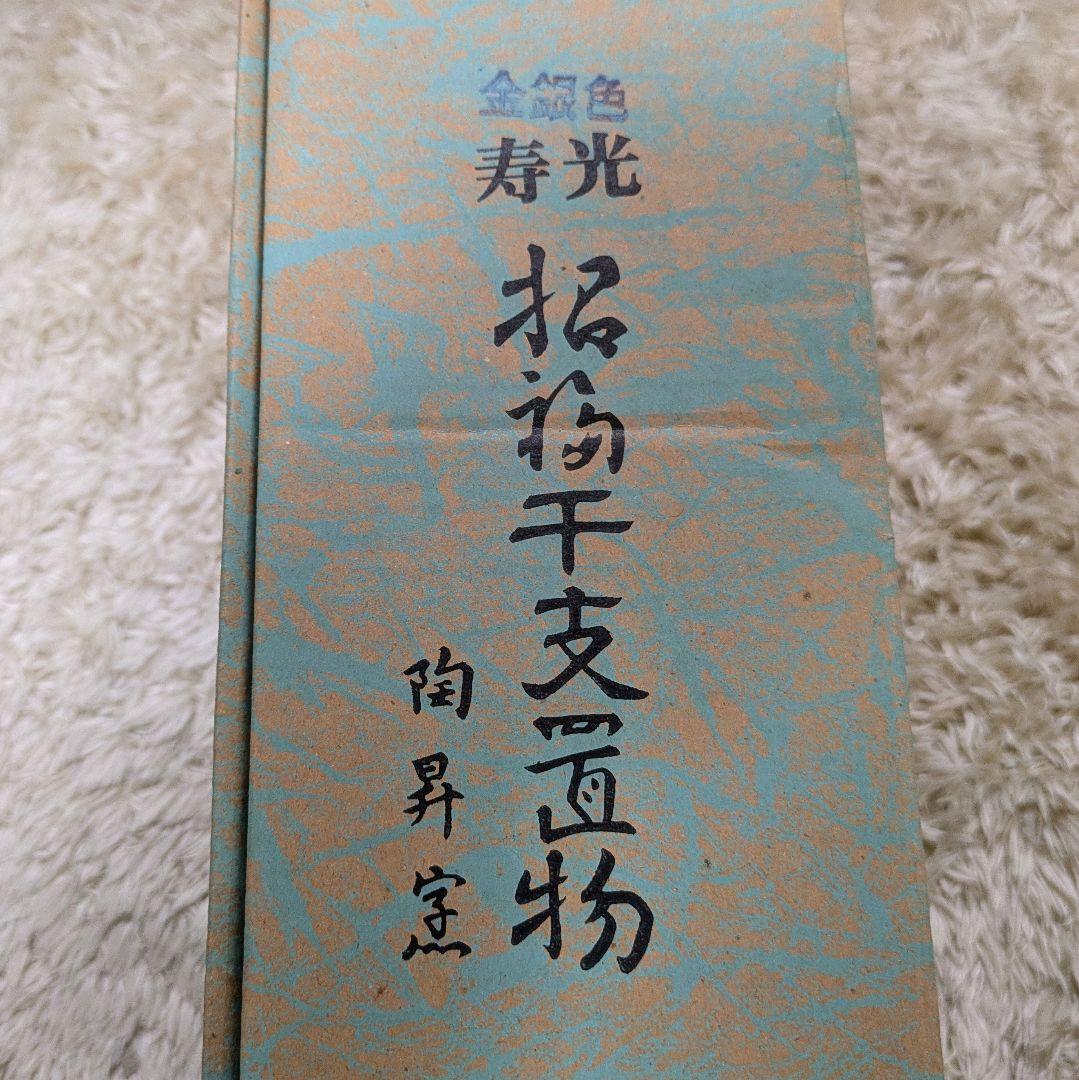 金銀色
寿光
招福干支置物
陶昇窯